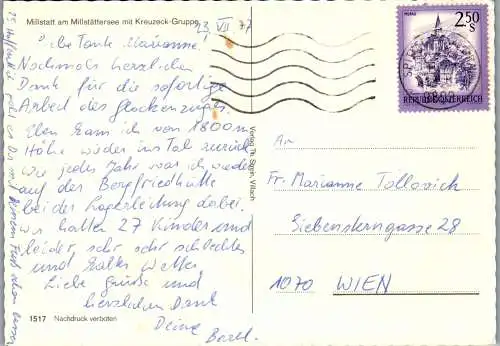 Millstatt am Millstättersee mit Kreuzeck-Gruppe
23 VII 77
Liebe Tante Marianne!
Nochmals herzlichen
Dank für die sofortige
Arbeit des Glockenzugs.
Eben kam ich von 1800 m
Höhe wieder ins Tal zurück
wie jedes Jahr war ich wieder
auf der Bergfriedhütte
bei der Lagerleitung dabei.
Wir hatten 27 Kinder und
leider sehr sehr schlechtes
und kaltes Wetter
Liebe Grüße und
herzlichen Dank
Deine
1517 Nachdruck verboten
P.S. Hoffentlich geht es Dir mit Deinem Fuß schon besser
Verlag Th. Sgerm, Villach
MURAU
2.50 S
REPUBLIK ÖSTERREICH
An
Fr. Marianne Tollovich
Siebensterngasse 28
1070 WIEN